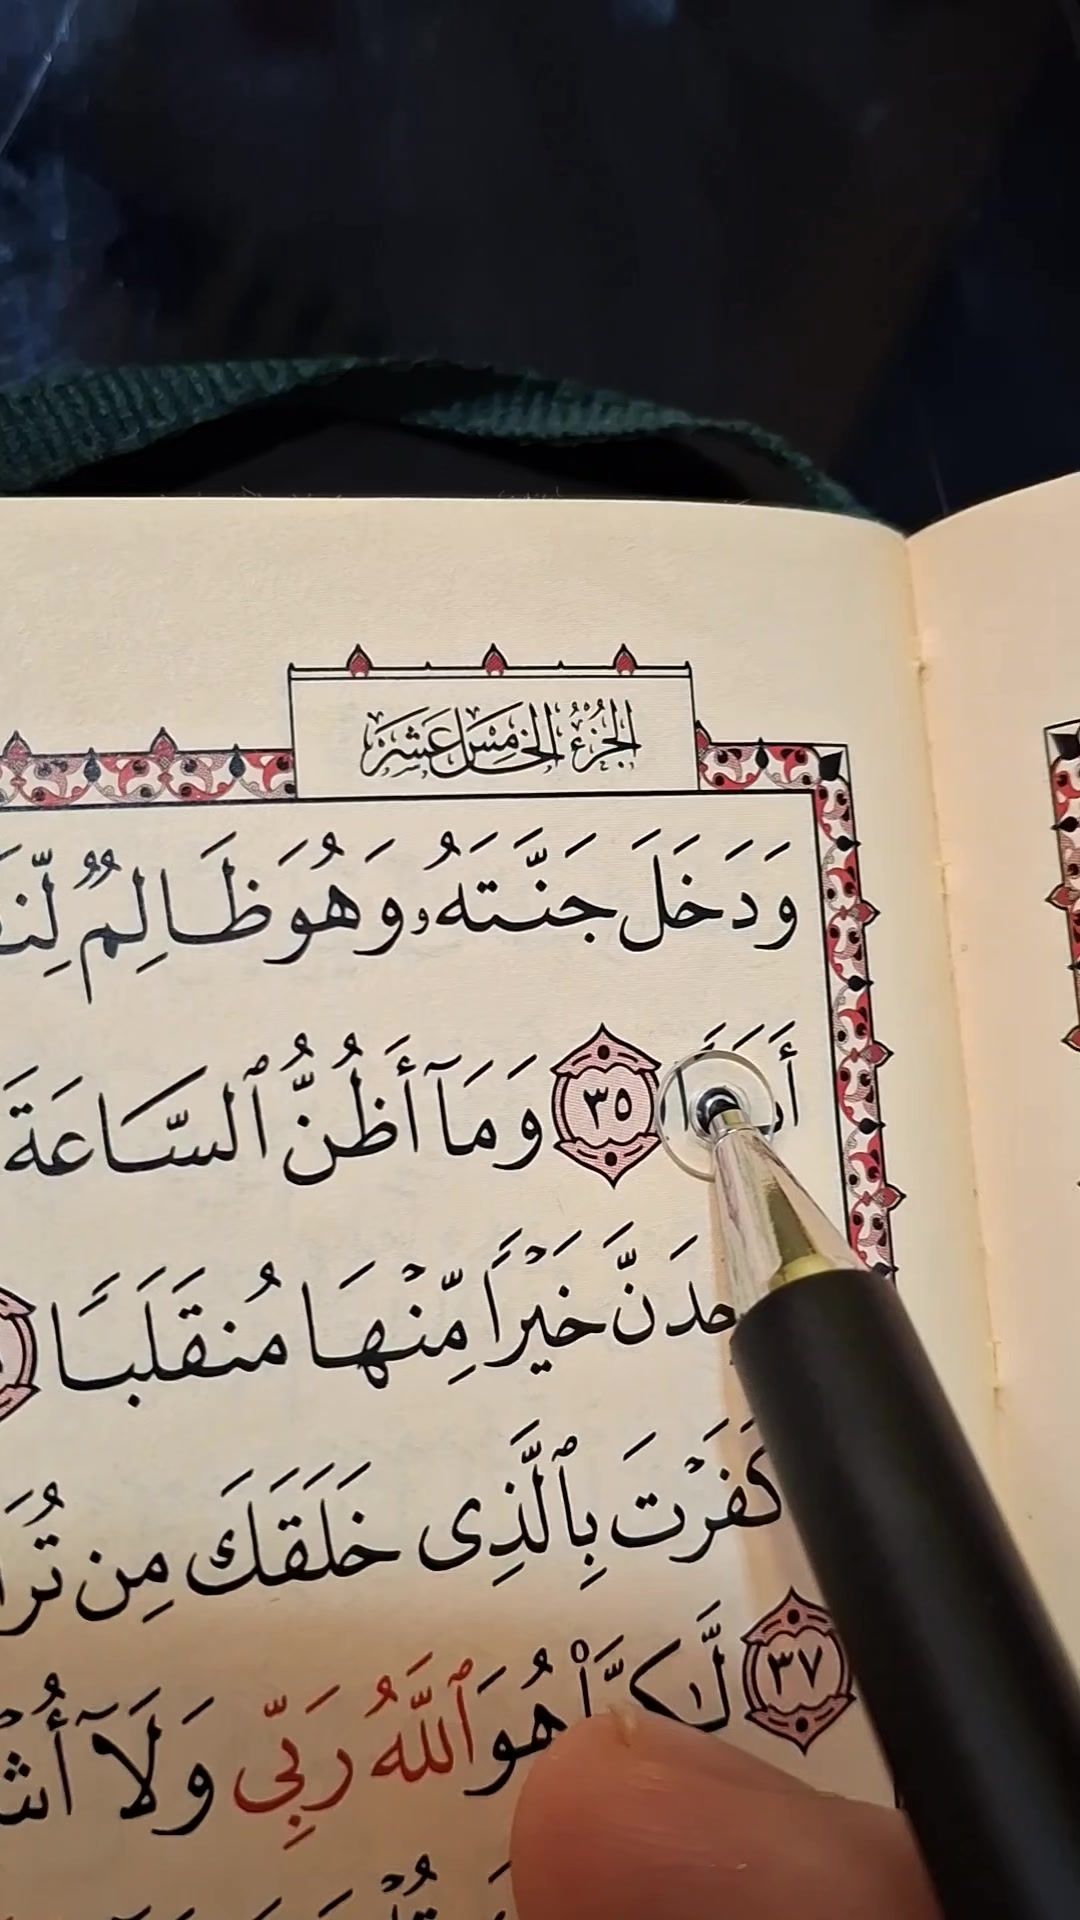 الجُزْءُ الخَامِسَ عَشَرَ
وَدَخَلَ جَنَّتَهُۥ وَهُوَ ظَالِمٌ
٣٥ وَمَآ أَظُنُّ ٱلسَّاعَةَ
خَيْرًا مِّنْهَا مُنقَلَبًا
كَفَرْتَ بِٱلَّذِى خَلَقَكَ مِن
٣٧ لَّٰكِنَّا۠ هُوَ ٱللَّهُ رَبِّى وَلَآ